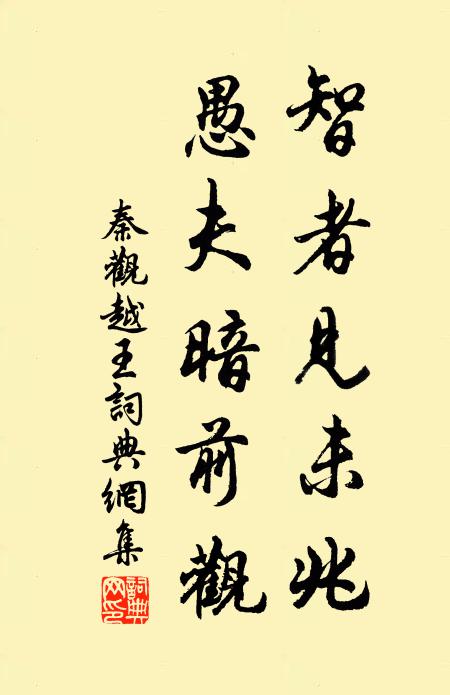 智者見未兆
愚夫暗前觀
秦觀越王詞典網集
詞典
网印